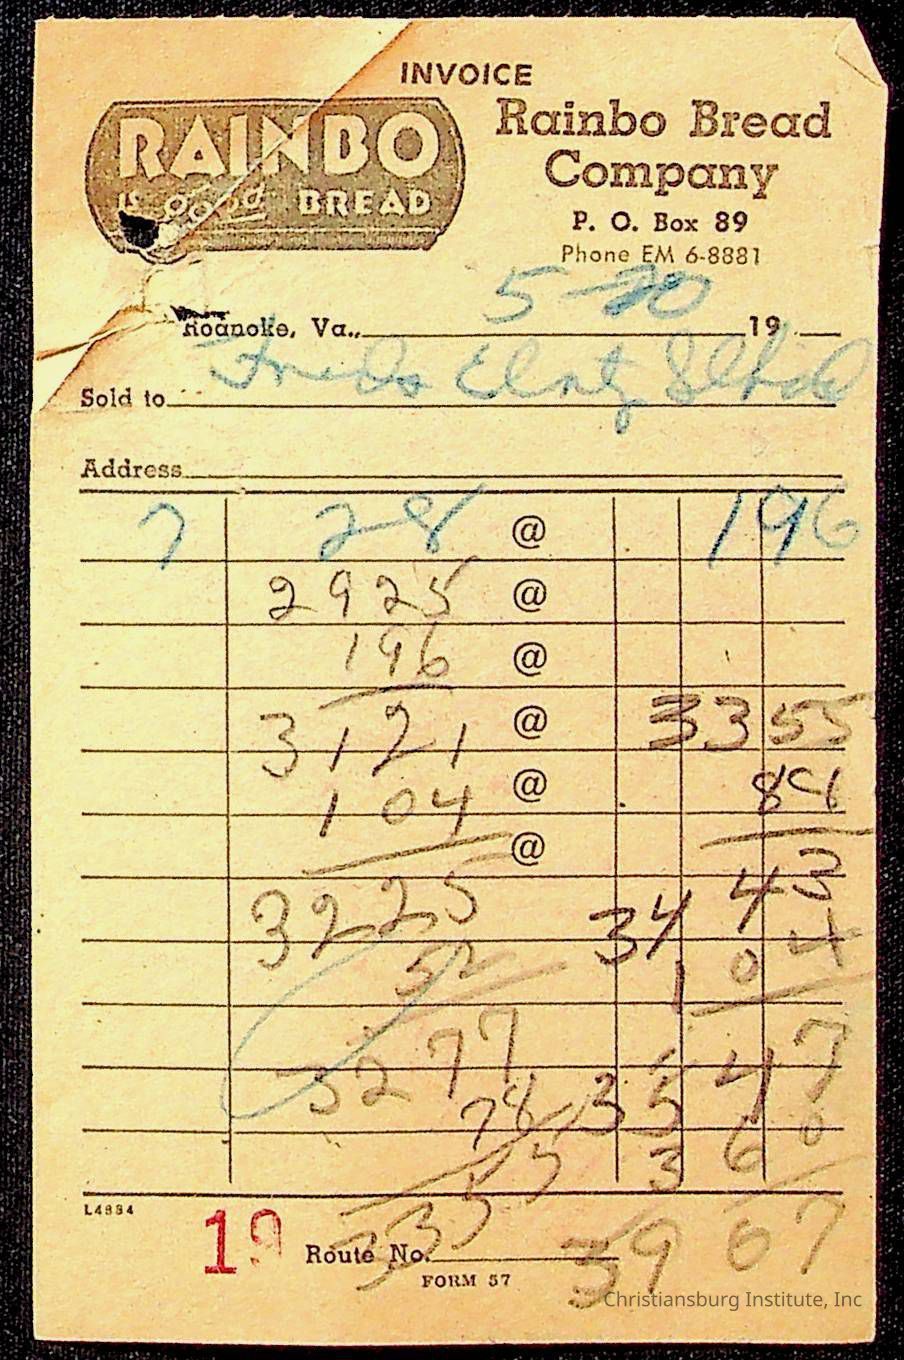 INVOICE
RAINBO
IS good BREAD
Rainbo Bread
Company
P. O. Box 89
Phone EM 6-8881
5-20
Roanoke, Va., 19
Sold to
Address
7 28 @ 196
2925 @
196 @
3121 @ 3355
104 @ 88
@
3225 3443
52 104
3277 3547
78 360
3355 3907
L4884
19 Route No.
FORM 57
Christiansburg Institute, Inc